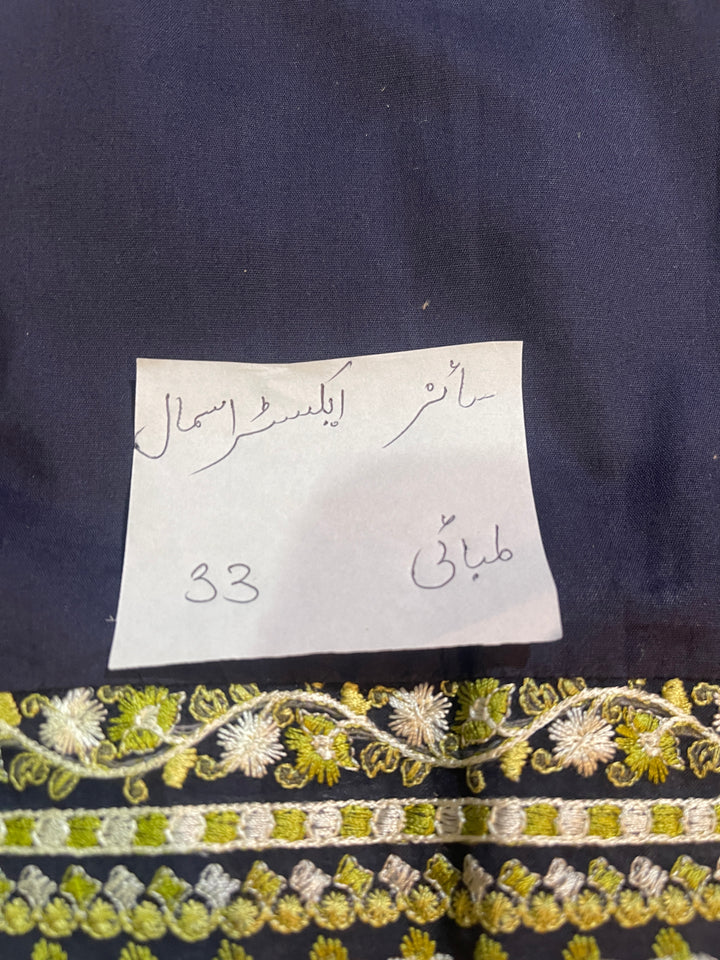 سائز ایکسٹرا سمال
لمبائی 33